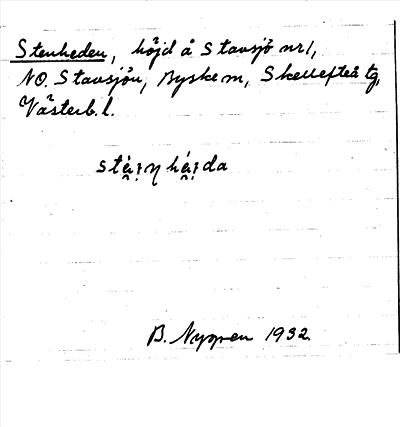 Stenheden, höjd å Stavsjö nr 1,
NO. Stavsjön, Byske m, Skellefteå tg,
Västerb. l.
B. Nygren 1932.